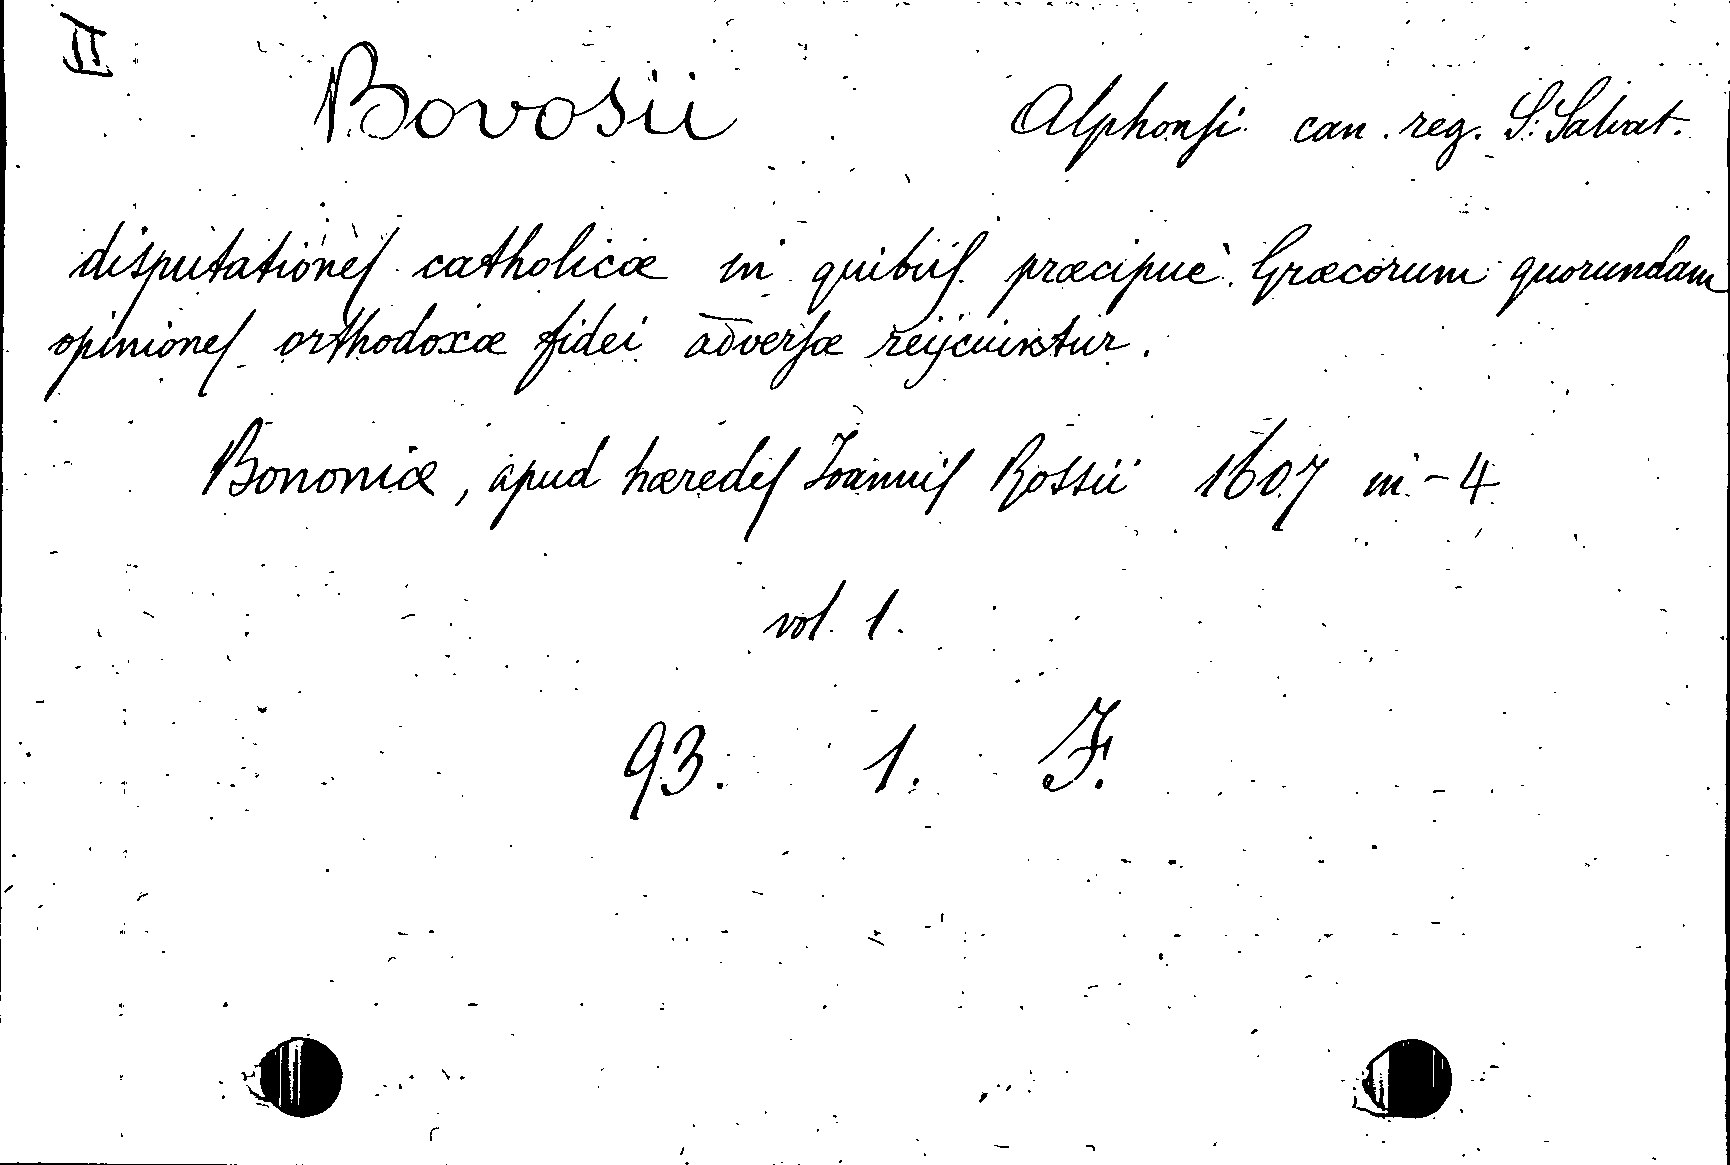 II
Bovosii Alphonsi can. reg. S: Salvat.
disputationes catholicæ in quibus præcipuè Græcorum quorundam
opiniones orthodoxæ fidei adversæ reijciuntur.
Bononiæ, apud hæredes Ioannis Rossii 1607 in-4
vol. 1.
93. 1. F.